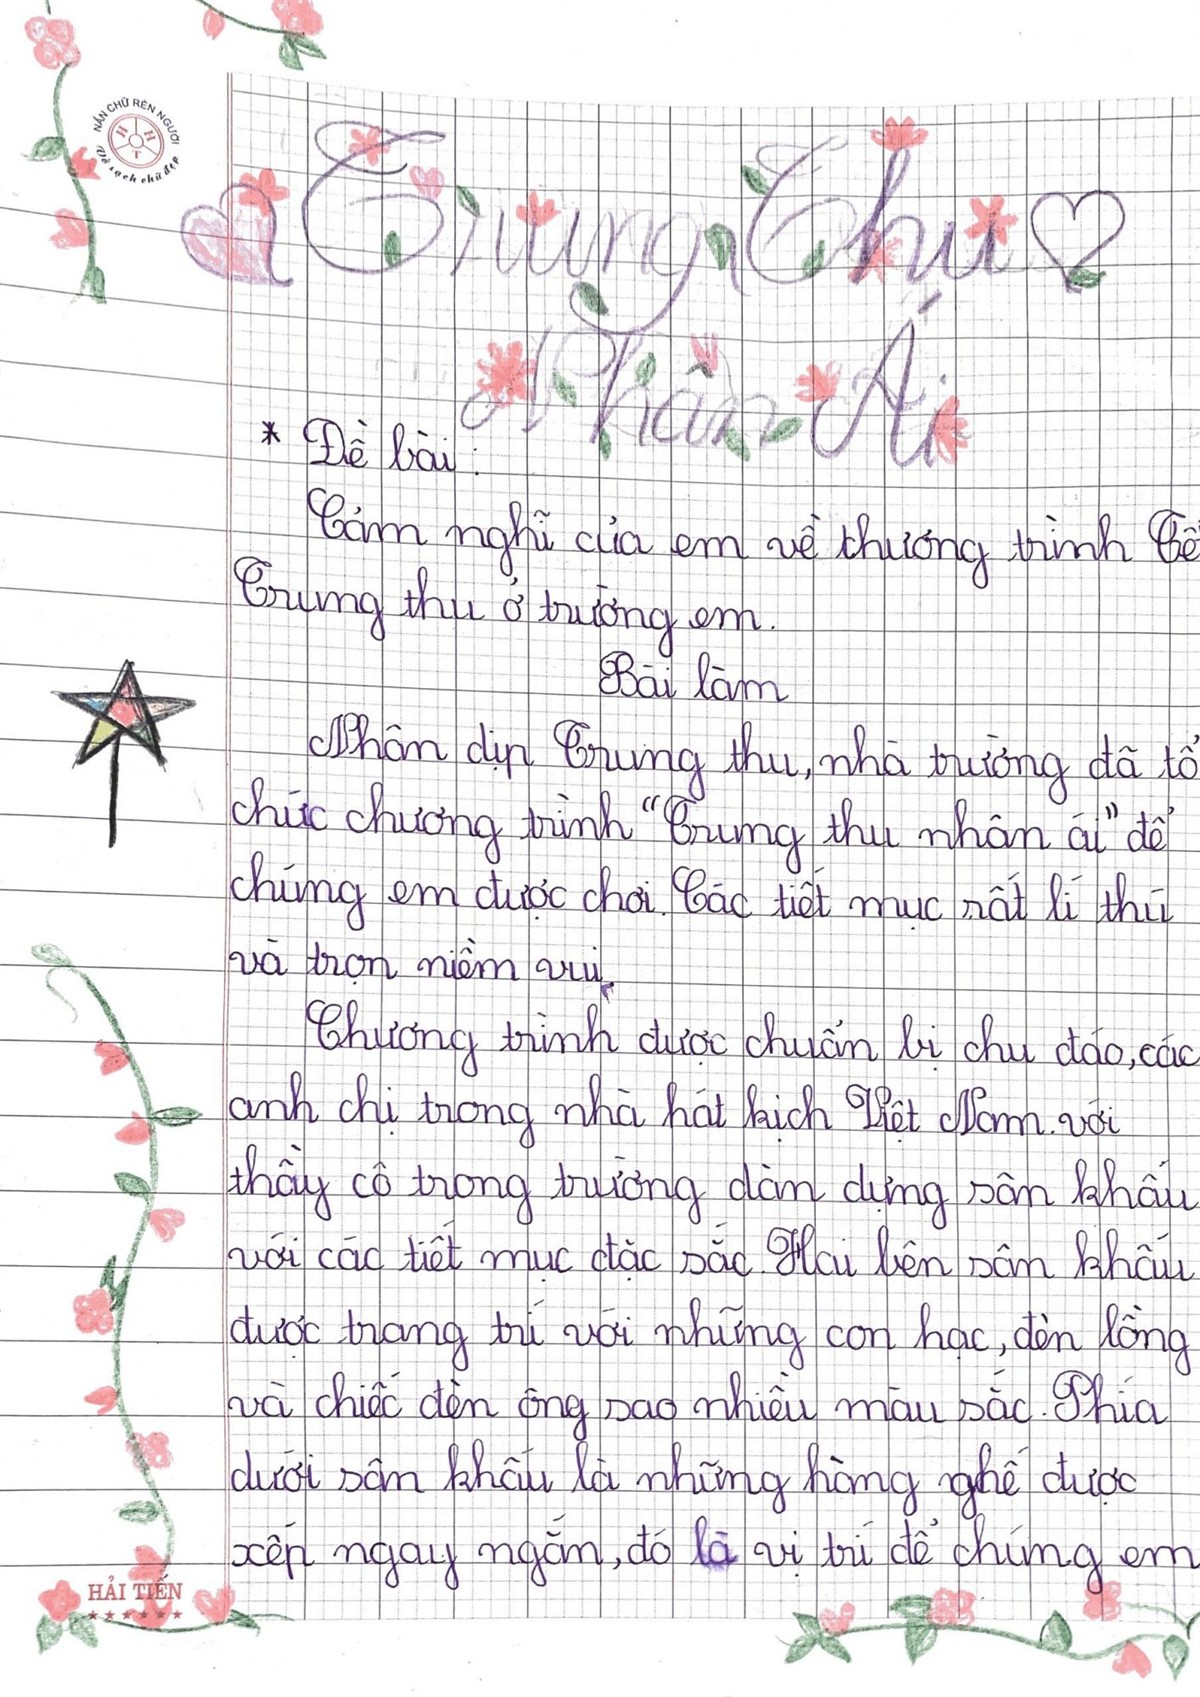 NẮN CHỮ RÈN NGƯỜI
H H T
Vở sạch chữ đẹp
Trung Thu
Nhân Ái
* Đề bài:
Cảm nghĩ của em về chương trình Tế
Trung thu ở trường em.
Bài làm
Nhân dịp Trung thu, nhà trường đã tổ
chức chương trình "Trung thu nhân ái" để
chúng em được chơi. Các tiết mục rất lí thú
và trọn niềm vui.
Chương trình được chuẩn bị chu đáo, các
anh chị trong nhà hát kịch Việt Nam với
thầy cô trong trường dàn dựng sân khấu
với các tiết mục đặc sắc. Hai bên sân khấu
được trang trí với những con hạc, đèn lồng
và chiếc đèn ông sao nhiều màu sắc. Phía
dưới sân khấu là những hàng ghế được
xếp ngay ngắn, đó là vị trí để chúng em
HẢI TIẾN